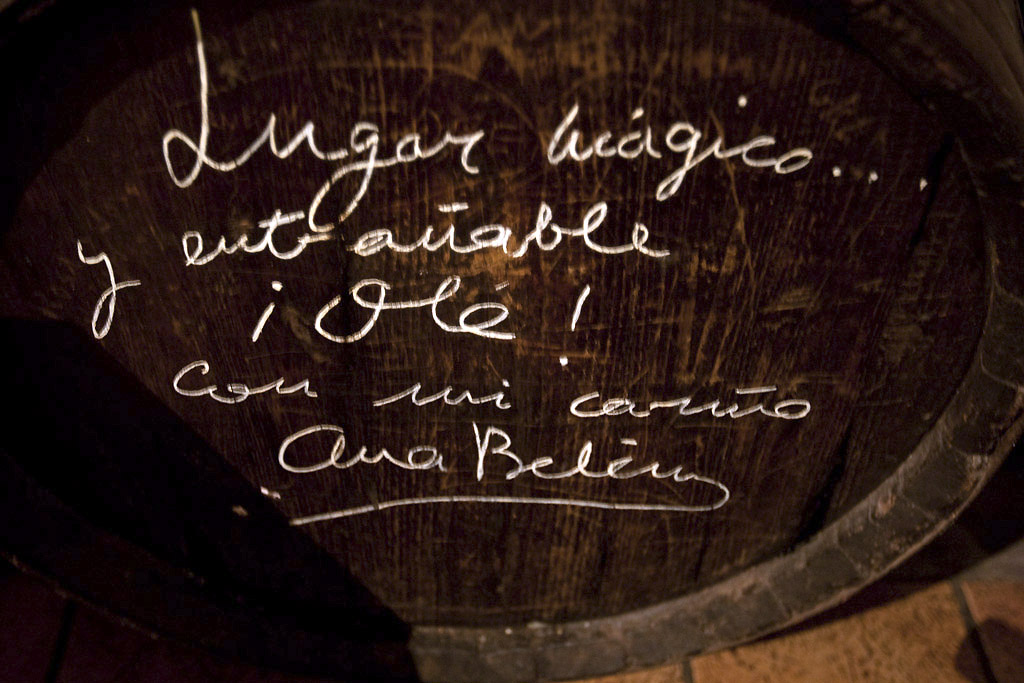 Lugar mágico...
y entrañable
¡Olé!
con mi cariño
Ana Belén